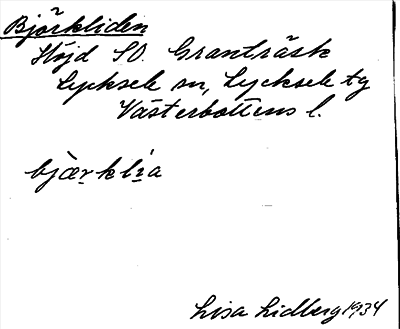 Björkliden
Höjd SO. Granträsk
Lycksele sn, Lycksele tg
Västerbottens l.
bjær̥klıa
Lisa Lidberg 1934